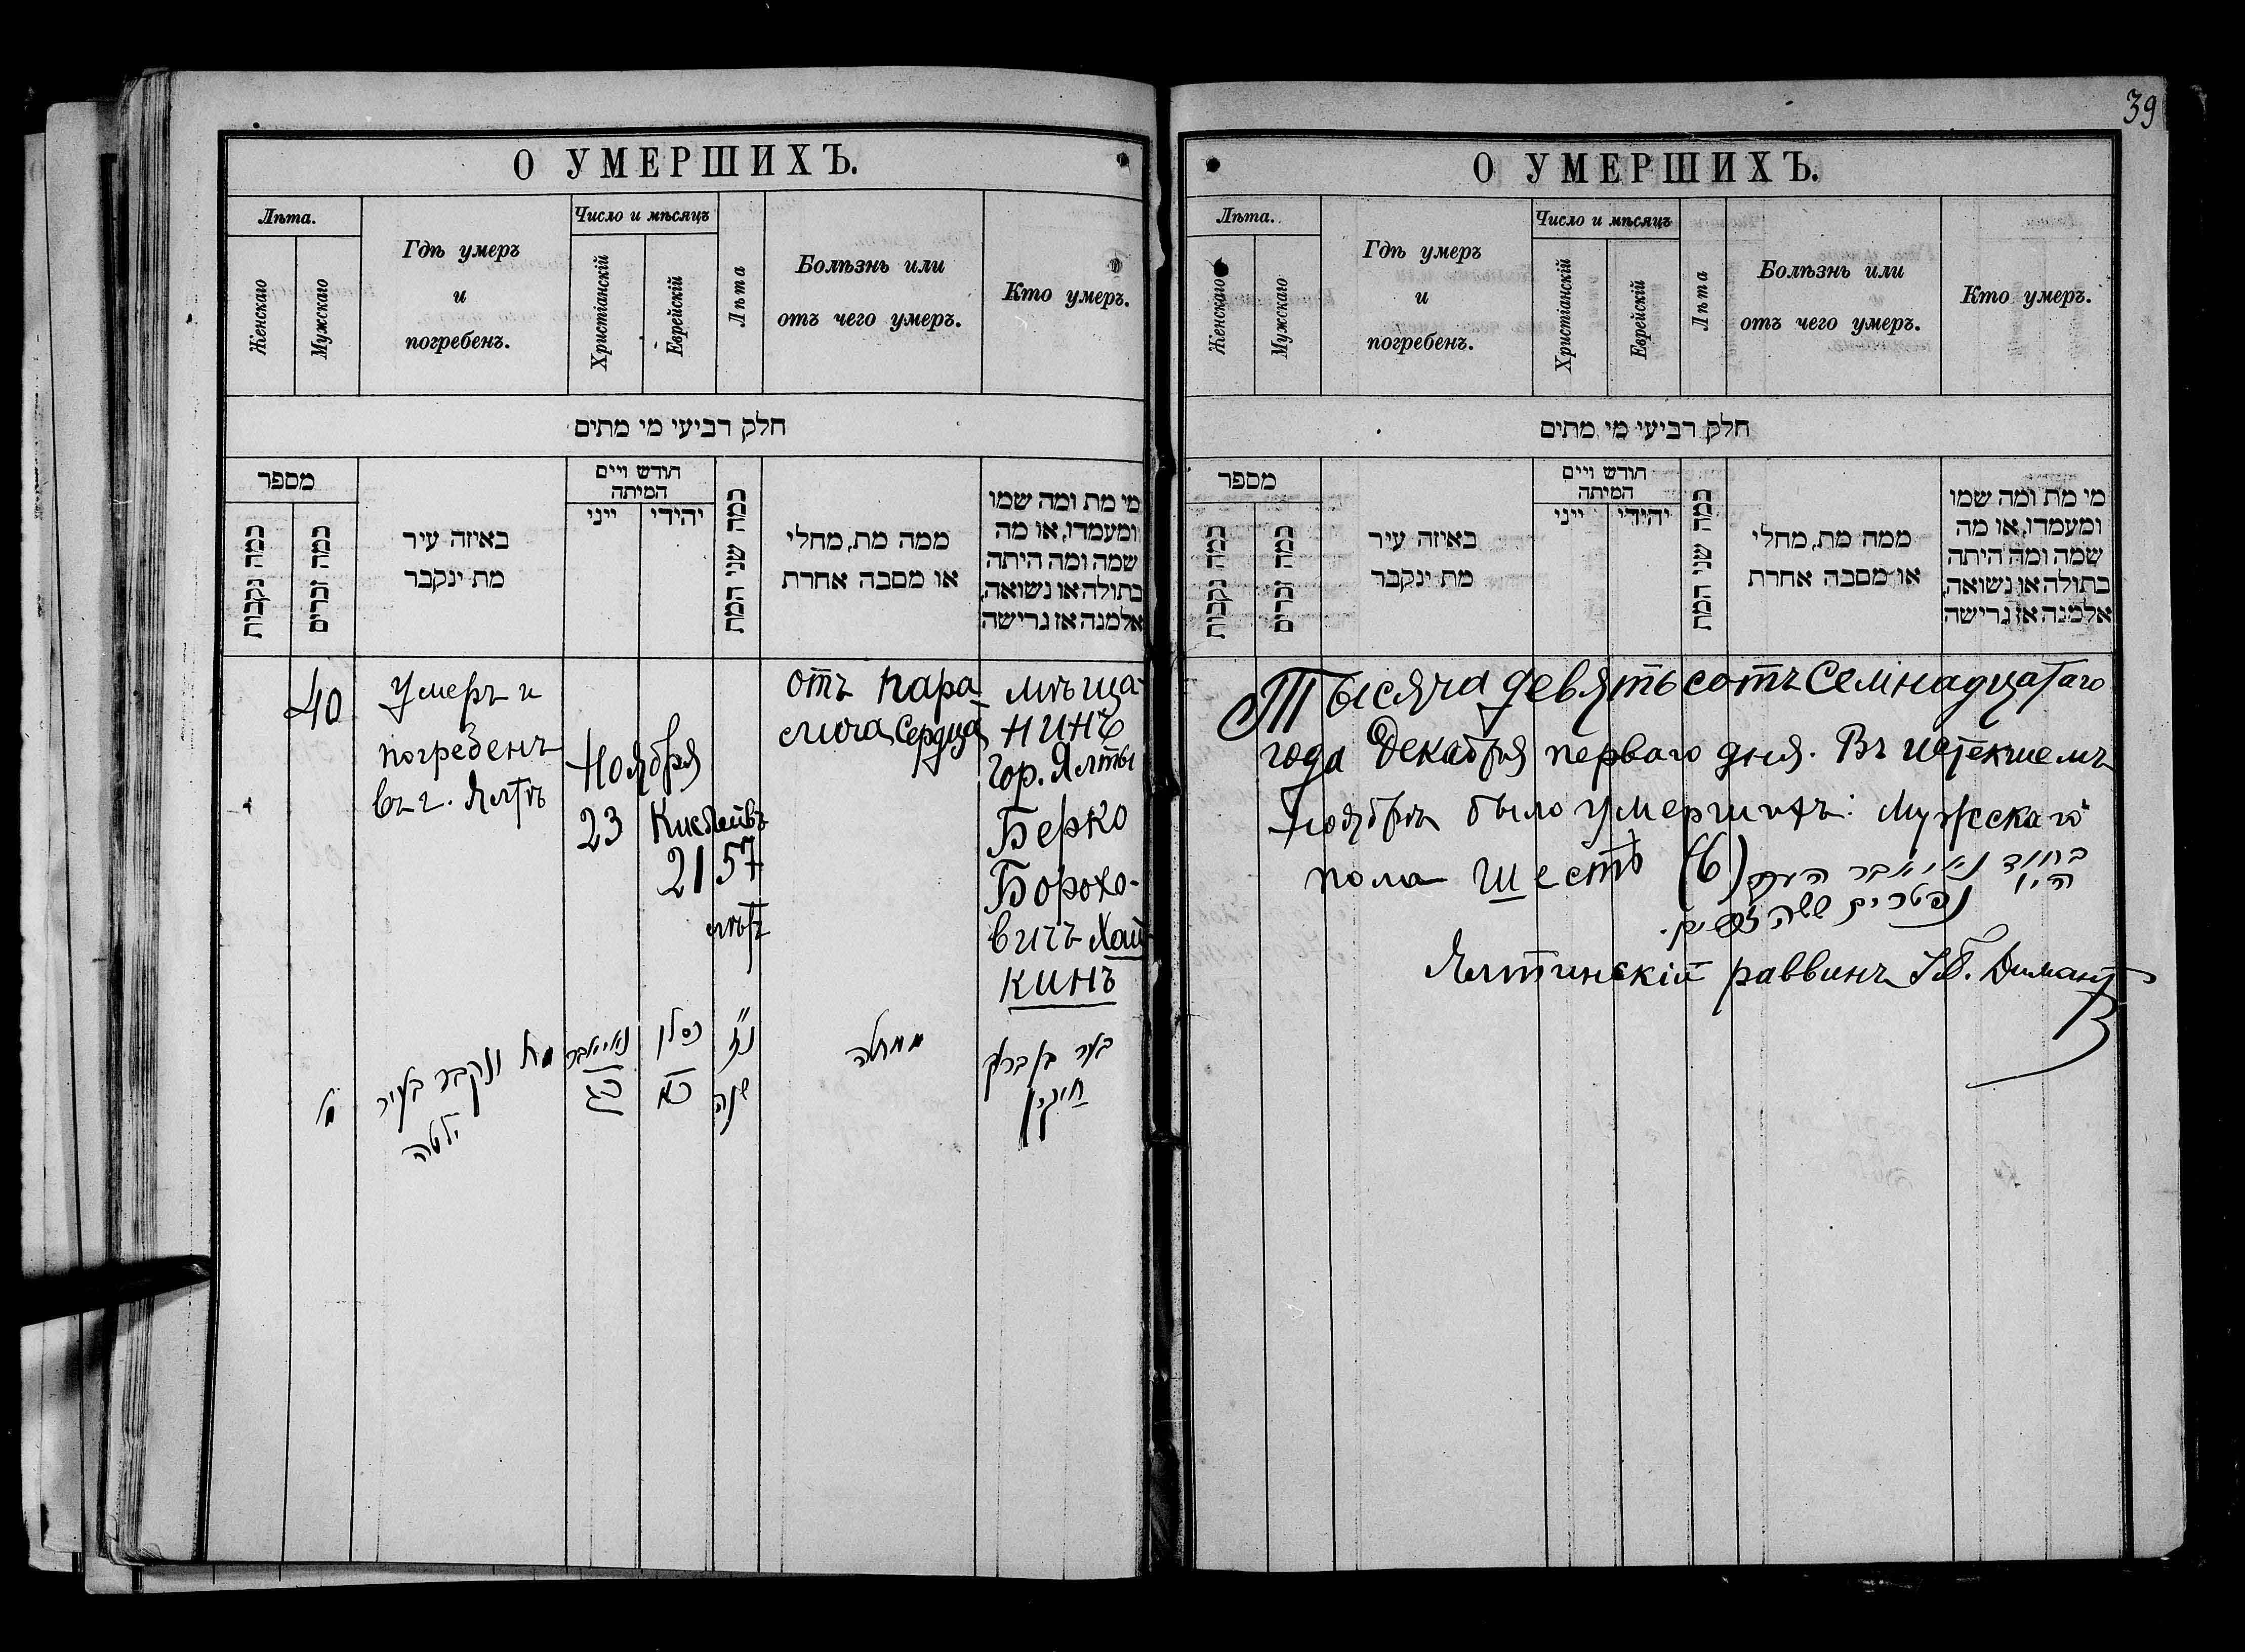 39
О УМЕРШИХЪ.
Лѣта.
Женскаго
Мужскаго
Гдѣ умеръ
и
погребенъ.
Число и мѣсяцъ
Христіанскій
Еврейскій
Лѣта
Болѣзнь или
отъ чего умеръ.
Кто умеръ.
חלק רביעי מי מתים
מספר
כמה נקבות
כמה זכרים
באיזה עיר
מת ינקבר
חודש ויים
המיתה
ייני
יהידי
כמה שני המת
ממה מת, מחלי
או מסבה אחרת
מי מת ומה שמו
ומעמדו, או מה
שמה ומה היתה
בתולה או נשואה,
אלמנה אז גרישה
40
Умеръ и
погребенъ
въ г. Ялтѣ
Ноября
23
Кислейвъ
21
57
лѣтъ
отъ пара
лича сердца
мѣща-
нинъ
гор. Ялты
Берко
Борохо-
вичъ Хай
кинъ
מ
מת ונקבר בעיר
ילטה
נאיאבר
כג
כסלו
כא
נז
שנה
ממחלה
בער בן ברוך
חייקין
О УМЕРШИХЪ.
Лѣта.
Женскаго
Мужскаго
Гдѣ умеръ
и
погребенъ.
Число и мѣсяцъ
Христіанскій
Еврейскій
Лѣта
Болѣзнь или
отъ чего умеръ.
Кто умеръ.
חלק רביעי מי מתים
מספר
כמה נקבות
כמה זכרים
באיזה עיר
מת ינקבר
חודש ויים
המיתה
ייני
יהידי
כמה שני המת
ממה מת, מחלי
או מסבה אחרת
מי מת ומה שמו
ומעמדו, או מה
שמה ומה היתה
בתולה או נשואה,
אלמנה אז גרישה
Тысяча девятьсотъ семнадцатаго
года Декабря перваго дня. Въ истекшемъ
Ноябрѣ было умершихъ: мужскаго
пола шесть (6)
נאיאבר
היו נפטרים ששה זכרים.
Ялтинскій раввинъ Диманъ